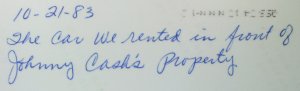 10-21-83
The Car We rented in front of
Johnny Cash's Property